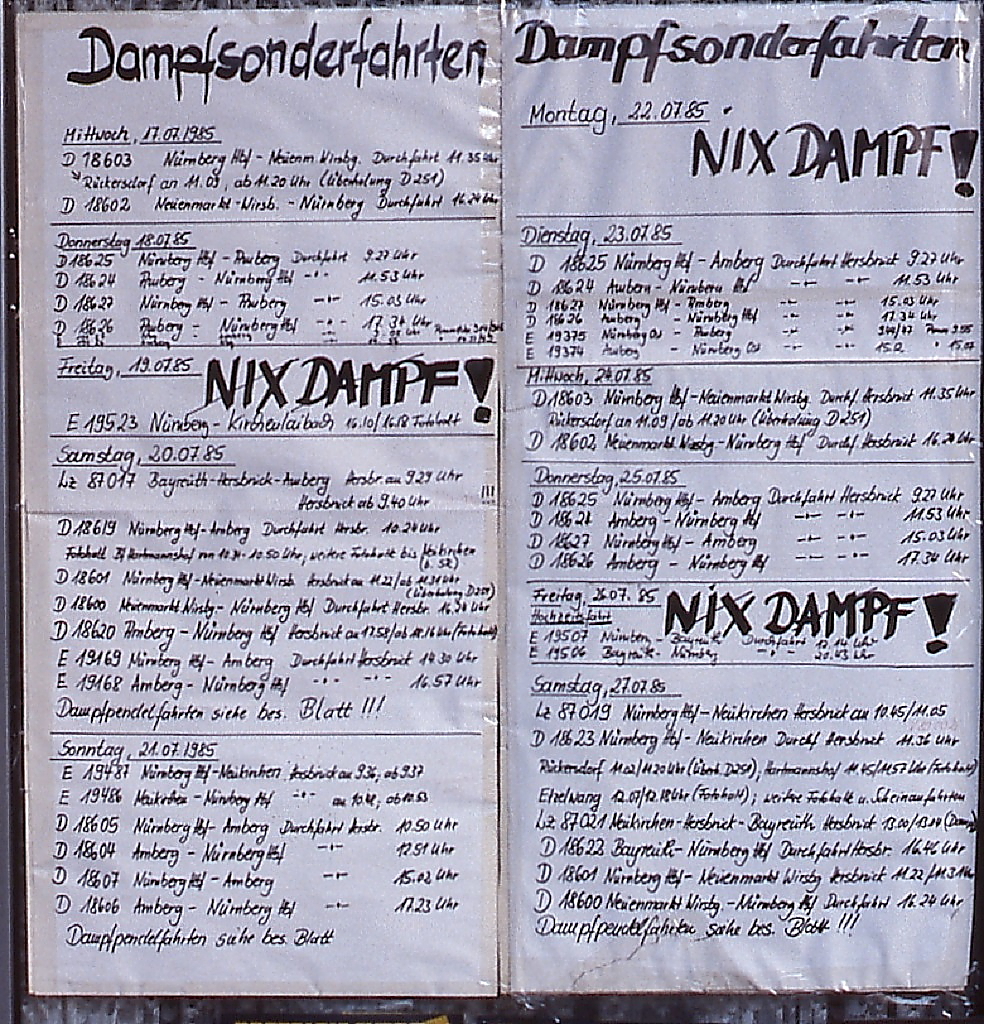 Dampfsonderfahrten
Mittwoch, 17.07.1985
D 18603 Nürnberg Hbf - Neuenm. Wirsbg. Durchfahrt 11.35 Uhr
Rückersdorf an 11.09, ab 11.20 Uhr (Überholung D251)
D 18602 Neuenmarkt-Wirsb. - Nürnberg Durchfahrt 16.24 Uhr
Donnerstag 18.07.85
D 18625 Nürnberg Hbf - Amberg Durchfahrt 9.27 Uhr
D 18624 Amberg - Nürnberg Hbf -"- 11.53 Uhr
D 18627 Nürnberg Hbf - Amberg -"- 15.03 Uhr
D 18626 Amberg - Nürnberg Hbf -"- 17.34 Uhr
Freitag, 19.07.85 NIX DAMPF!
E 19523 Nürnberg - Kirchenlaibach 16.10/16.18 Fotohalt
Samstag, 20.07.85
Lz 87017 Bayreuth-Hersbruck-Amberg Hersbr. an 9.29 Uhr
Hersbruck ab 9.40 Uhr !!!
D 18619 Nürnberg Hbf-Amberg Durchfahrt Hersbr. 10.24 Uhr
Fotohalt Bf Hartmannshof von 10.31-10.50 Uhr, weitere Fotohalte bis Neukirchen
D 18601 Nürnberg Hbf-Neuenmarkt Wirsb. Hersbruck an 11.22/ab 11.31 Uhr
(Überholung D251)
D 18600 Neuenmarkt Wirsbg - Nürnberg Hbf Durchfahrt Hersbr. 16.24 Uhr
D 18620 Amberg - Nürnberg Hbf Hersbruck an 17.58/ab 18.16 Uhr (Fotohalt)
E 19169 Nürnberg Hbf - Amberg Durchfahrt Hersbruck 14.30 Uhr
E 19168 Amberg - Nürnberg Hbf -"- -"- 16.57 Uhr
Dampfpendelfahrten siehe bes. Blatt !!!
Sonntag, 21.07.1985
E 19487 Nürnberg Hbf-Neukirchen Hersbruck an 9.36, ab 9.37
E 19486 Neukirchen - Nürnberg Hbf -"- an 10.42, ab 10.53
D 18605 Nürnberg Hbf - Amberg Durchfahrt Hersbr. 10.50 Uhr
D 18604 Amberg - Nürnberg Hbf -"- 12.51 Uhr
D 18607 Nürnberg Hbf - Amberg -"- 15.02 Uhr
D 18606 Amberg - Nürnberg Hbf -"- 17.23 Uhr
Dampfpendelfahrten siehe bes. Blatt
Dampfsonderfahrten
Montag, 22.07.85
NIX DAMPF!
Dienstag, 23.07.85
D 18625 Nürnberg Hbf - Amberg Durchfahrt Hersbruck 9.27 Uhr
D 18624 Amberg - Nürnberg Hbf -"- -"- 11.53 Uhr
D 18627 Nürnberg Hbf - Amberg -"- -"- 15.03 Uhr
D 18626 Amberg - Nürnberg Hbf -"- -"- 17.34 Uhr
E 19375 Nürnberg Ost - Amberg -"- -"-
E 19374 Amberg - Nürnberg Ost -"- -"-
Mittwoch, 24.07.85
D 18603 Nürnberg Hbf - Neuenmarkt Wirsbg. Durchf. Hersbruck 11.35 Uhr
Rückersdorf an 11.09/ ab 11.20 Uhr (Überholung D251)
D 18602 Neuenmarkt Wirsbg-Nürnberg Hbf Durchf. Hersbruck 16.24 Uhr
Donnerstag, 25.07.85
D 18625 Nürnberg Hbf - Amberg Durchfahrt Hersbruck 9.27 Uhr
D 18624 Amberg - Nürnberg Hbf -"- -"- 11.53 Uhr
D 18627 Nürnberg Hbf - Amberg -"- -"- 15.03 Uhr
D 18626 Amberg - Nürnberg Hbf -"- -"- 17.34 Uhr
Freitag, 26.07.85 NIX DAMPF!
Hochzeitsfahrt
E 19507 Nürnberg - Bayreuth Durchfahrt 10.14 Uhr
E 19506 Bayreuth - Nürnberg -"- 20.43 Uhr
Samstag, 27.07.85
Lz 87019 Nürnberg Hbf - Neukirchen Hersbruck an 10.45/11.05
D 18623 Nürnberg Hbf - Neukirchen Durchf. Hersbruck 11.36 Uhr
Rückersdorf 11.02/11.20 Uhr (Überh. D251); Hartmannshof 11.45/11.57 Uhr (Fotohalt)
Etzelwang 12.07/12.18 Uhr (Fotohalt); weitere Fotohalte u. Scheinanfahrten
Lz 87021 Neukirchen-Hersbruck-Bayreuth Hersbruck 13.00/13.04
D 18622 Bayreuth - Nürnberg Hbf Durchfahrt Hersbr. 16.46 Uhr
D 18601 Nürnberg Hbf - Neuenmarkt Wirsbg Hersbruck 11.22/11.31 Uhr
D 18600 Neuenmarkt Wirsbg. - Nürnberg Hbf Durchfahrt 16.24 Uhr
Dampfpendelfahrten siehe bes. Blatt !!!